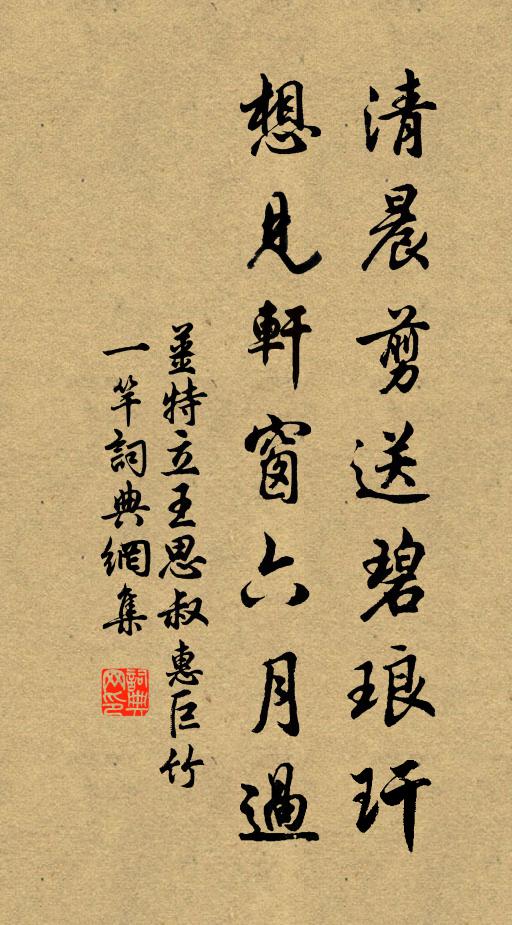 清晨剪送碧琅玕
想見軒窗六月過
姜特立王思叔惠巨竹
一竿詞典網集
詞典网印